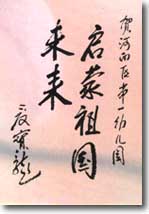 贺河西区第一幼儿园
启蒙祖国
未来